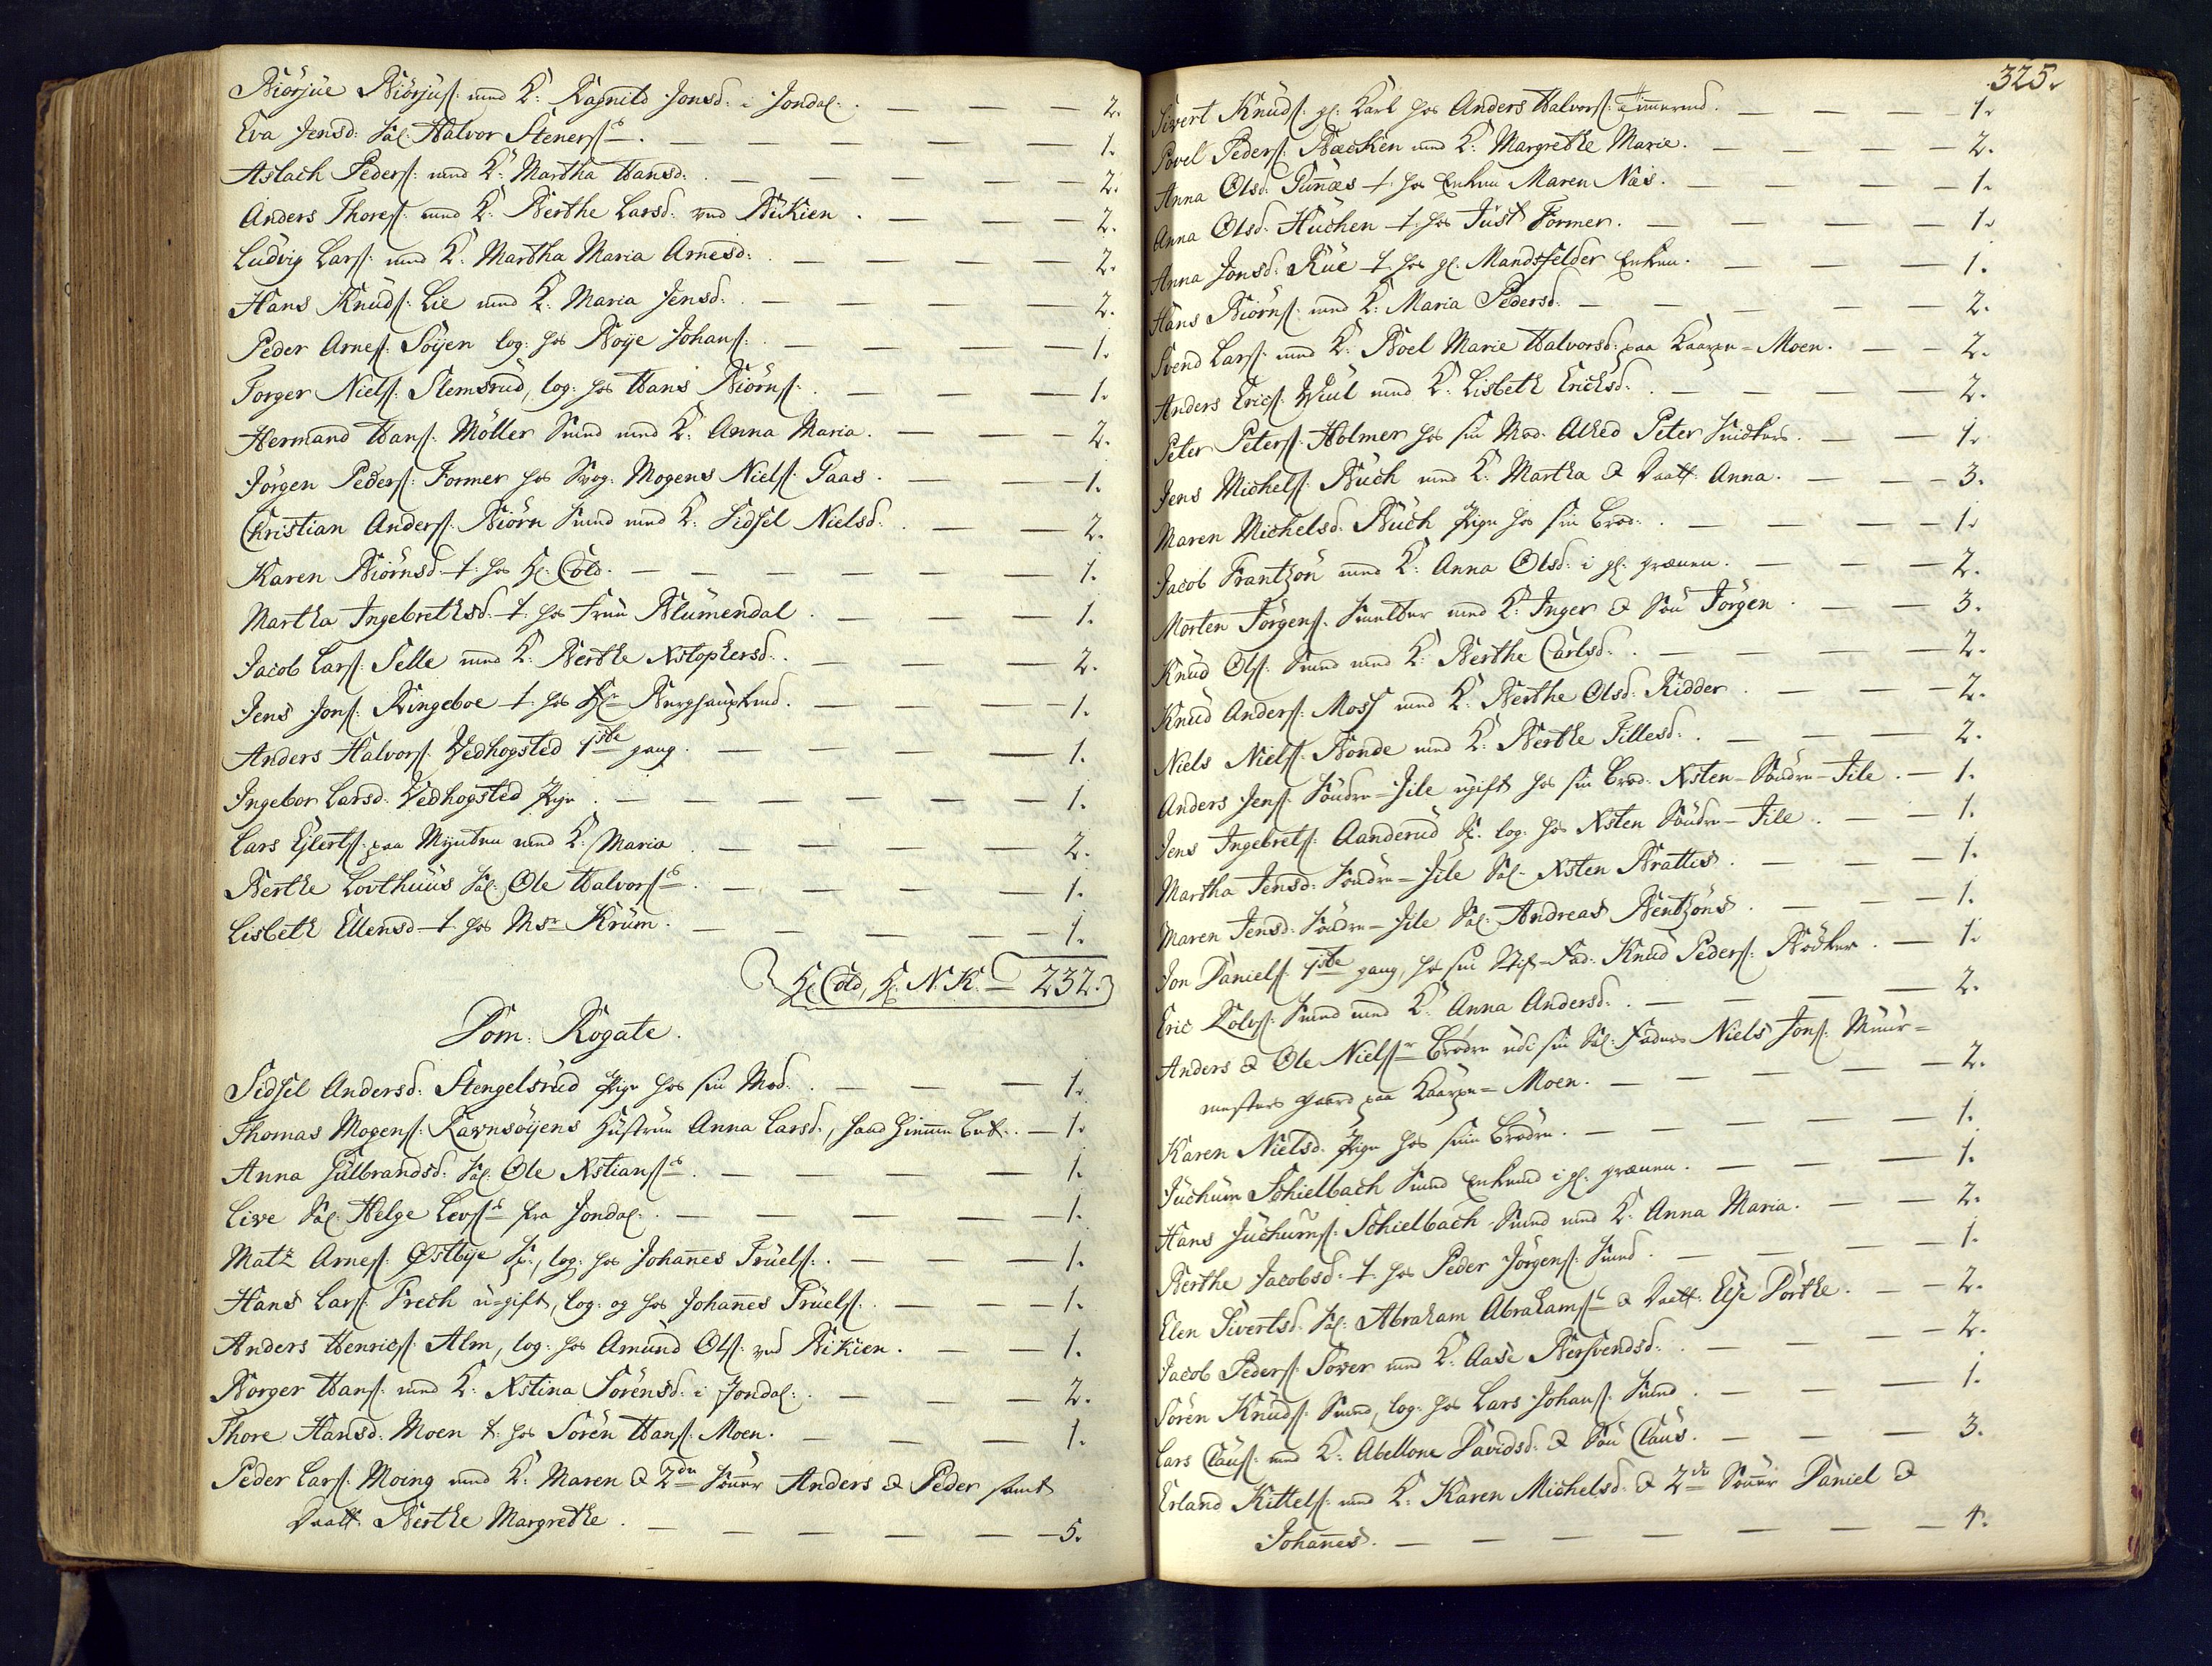 Biörjue Biörjus: med K: Ragnild Jonsd: i Jondal: . — — — 2.
Eva Jensd: Sal: Halvor Steners: — — — 1.
Aslach Peders: med K: Martha Hansd: — — — 2.
Anders Thores: med K: Berthe Larsd: ved Bükien . — — — 2.
Ludvig Lars: med K: Martha Maria Arnesd: — — — 2.
Hans Knuds: Lie med K: Maria Jensd: — — — 2.
Peder Arnes: Söyen log: hos Boye Johans: — — — 1.
Torger Niels: Slemsrud, log: hos Hans Biörns: — — — 1.
Hermand Hans: Möller Smed med K: Anna Maria. — — — 2.
Jörgen Peders: Former hos Svog: Mogens Niels: Taas. — — — 1.
Christian Anders: Biörn Smed med K: Sidsel Nielsd: — — — 2.
Karen Biörnsd: t: hos H: Cold. — — — 1.
Martha Ingebrethsd: t: hos Frue Blumendal . — — — 1.
Jacob Lars: Selle med K: Berthe Xstophersd: . — — — 2.
Jens Jons: Ringeboe t: hos Hr Berghauptmd. — — — 1.
Anders Halvors: Vedhogsted 1ste gang. — — — 1.
Ingebor Larsd: Vedhogsted Pige . — — — 1.
Lars Ejlerts: paa Mynten med K: Maria . — — — 2.
Berthe Lovthuus Sal: Ole Halvors: . — — — 1.
Lisbeth Ellensd t: hos Msr Krüm. — — — 1.
H: Cold, H: N. K. — 232.
Dom: Rogate.
Sidsel Andersd: Stengelsrud Pige hos sin Mod: . — — — 1.
Thomas Mogens: Ravnsöyens Hustrue Anna Larsd:, haad hiemme Bet. . — 1.
Anna Gulbrandsd: Sal: Ole Xstians: . — — — 1.
Live Sal: Helge Levs: fra Jondal: . — — — 1.
Matz Arnes: Østbye S:, log: hos Johannes Truels: . — — — 1.
Hans Lars: Frech u-gift, log: og hos Johannes Truels: . — — — 1.
Anders Henrics: Alm, log: hos Amund Ols: ved Bikien . — — — 1.
Borger Hans: med K: Xstina Sörensd: i Jondal: . — — — 2.
Thore Hansd: Moen t: hos Sören Hans: Moen. — — — 1.
Peder Lars: Moing med K: Maren & 2de Sönner Anders & Peder samt
Daatt: Berthe Margrethe . — — — 5.
325.
Sivert Knuds: gl: Karl hos Anders Halvors: Timmermd. — — — 1.
Povel Peders: Backen med K: Margrethe Marie. — — — 2.
Anna Olsd: Tunæs t: hos Enken Maren Næs. — — — 1.
Anna Olsd: Huchen t: hos Just Former. — — — 1.
Anna Jonsd: Rüe t: hos gl: Mandsfelder Enken. — — — 1.
Hans Biörns: med K: Maria Pedersd: — — — 2.
Svend Lars: med K: Boel Marie Halvorsd: paa Kaarpe-Moen. — — 2.
Anders Erics: Wiul med K: Lisbeth Ericksd: . — — — 2.
Peter Peters: Holmer hos sin Mod: Alhed Peter Snidkers. — — — 1.
Jens Michels: Buch med K: Martha & Daatt: Anna. — — — 3.
Maren Michelsd: Buch Pige hos sin Brod: . — — — 1.
Jacob Frantzön med K: Anna Olsd: i gl: grænen. — — — 2.
Morten Jörgens: Smelter med K: Inger & Sön Jörgen . — — 3.
Knud Ols: Smed med K: Berthe Carlsd: . — — — 2.
Knud Anders: Moss med K: Berthe Olsd: Ridder . — — — 2.
Niels Niels: Bonde med K: Berthe Tillesd: . — — — 2.
Anders Jens: Söndre-Jile ugift hos sin Brod: Xsten Söndre-Jile . — 1.
Jens Ingebrets: Aanderud S: log: hos Xsten Söndre-Jile . — — 1.
Martha Jensd: Söndre-Jile Sal: Xsten Brattes . — — — 1.
Maren Jensd: Söndre-Jile Sal: Andreas Bentzöns . — — — 1.
Jon Daniels: 1ste gang, hos sin Stif-Fad: Knud Peders: Bödker . — 1.
Eric Rolvs: Smed med K: Anna Andersd: . — — — 2.
Anders & Ole Nielsr Brödre udi sin Sal: Faders Niels Jons: Muur-
mesters gaard paa Kaarpe-Moen. — — — 2.
Karen Nielsd: Pige hos sine Brödre. — — — 1.
Juchum Schielbach Smed Enkemd i gl: grænen. — — — 1.
Hans Juchums: Schielbach Smed med K: Anna Maria. — — 2.
Berthe Jacobsd: t: hos Peder Jörgens: Smed . — — — 1.
Elen Sivertsd: Sal: Abraham Abrahams: & Daatt: Else Dorthe . — 2.
Jacob Peders: Sover med K: Aase Bersvendsd: . — — — 2.
Sören Knuds: Smed, log: hos Lars Johans: Smed . — — — 1.
Lars Claus: med K: Abellone Davidsd: & Sön Claus. — — — 3.
Erland Kittels: med K: Karen Michelsd: & 2de Sönner Daniel &
Johannes. — — — 4.